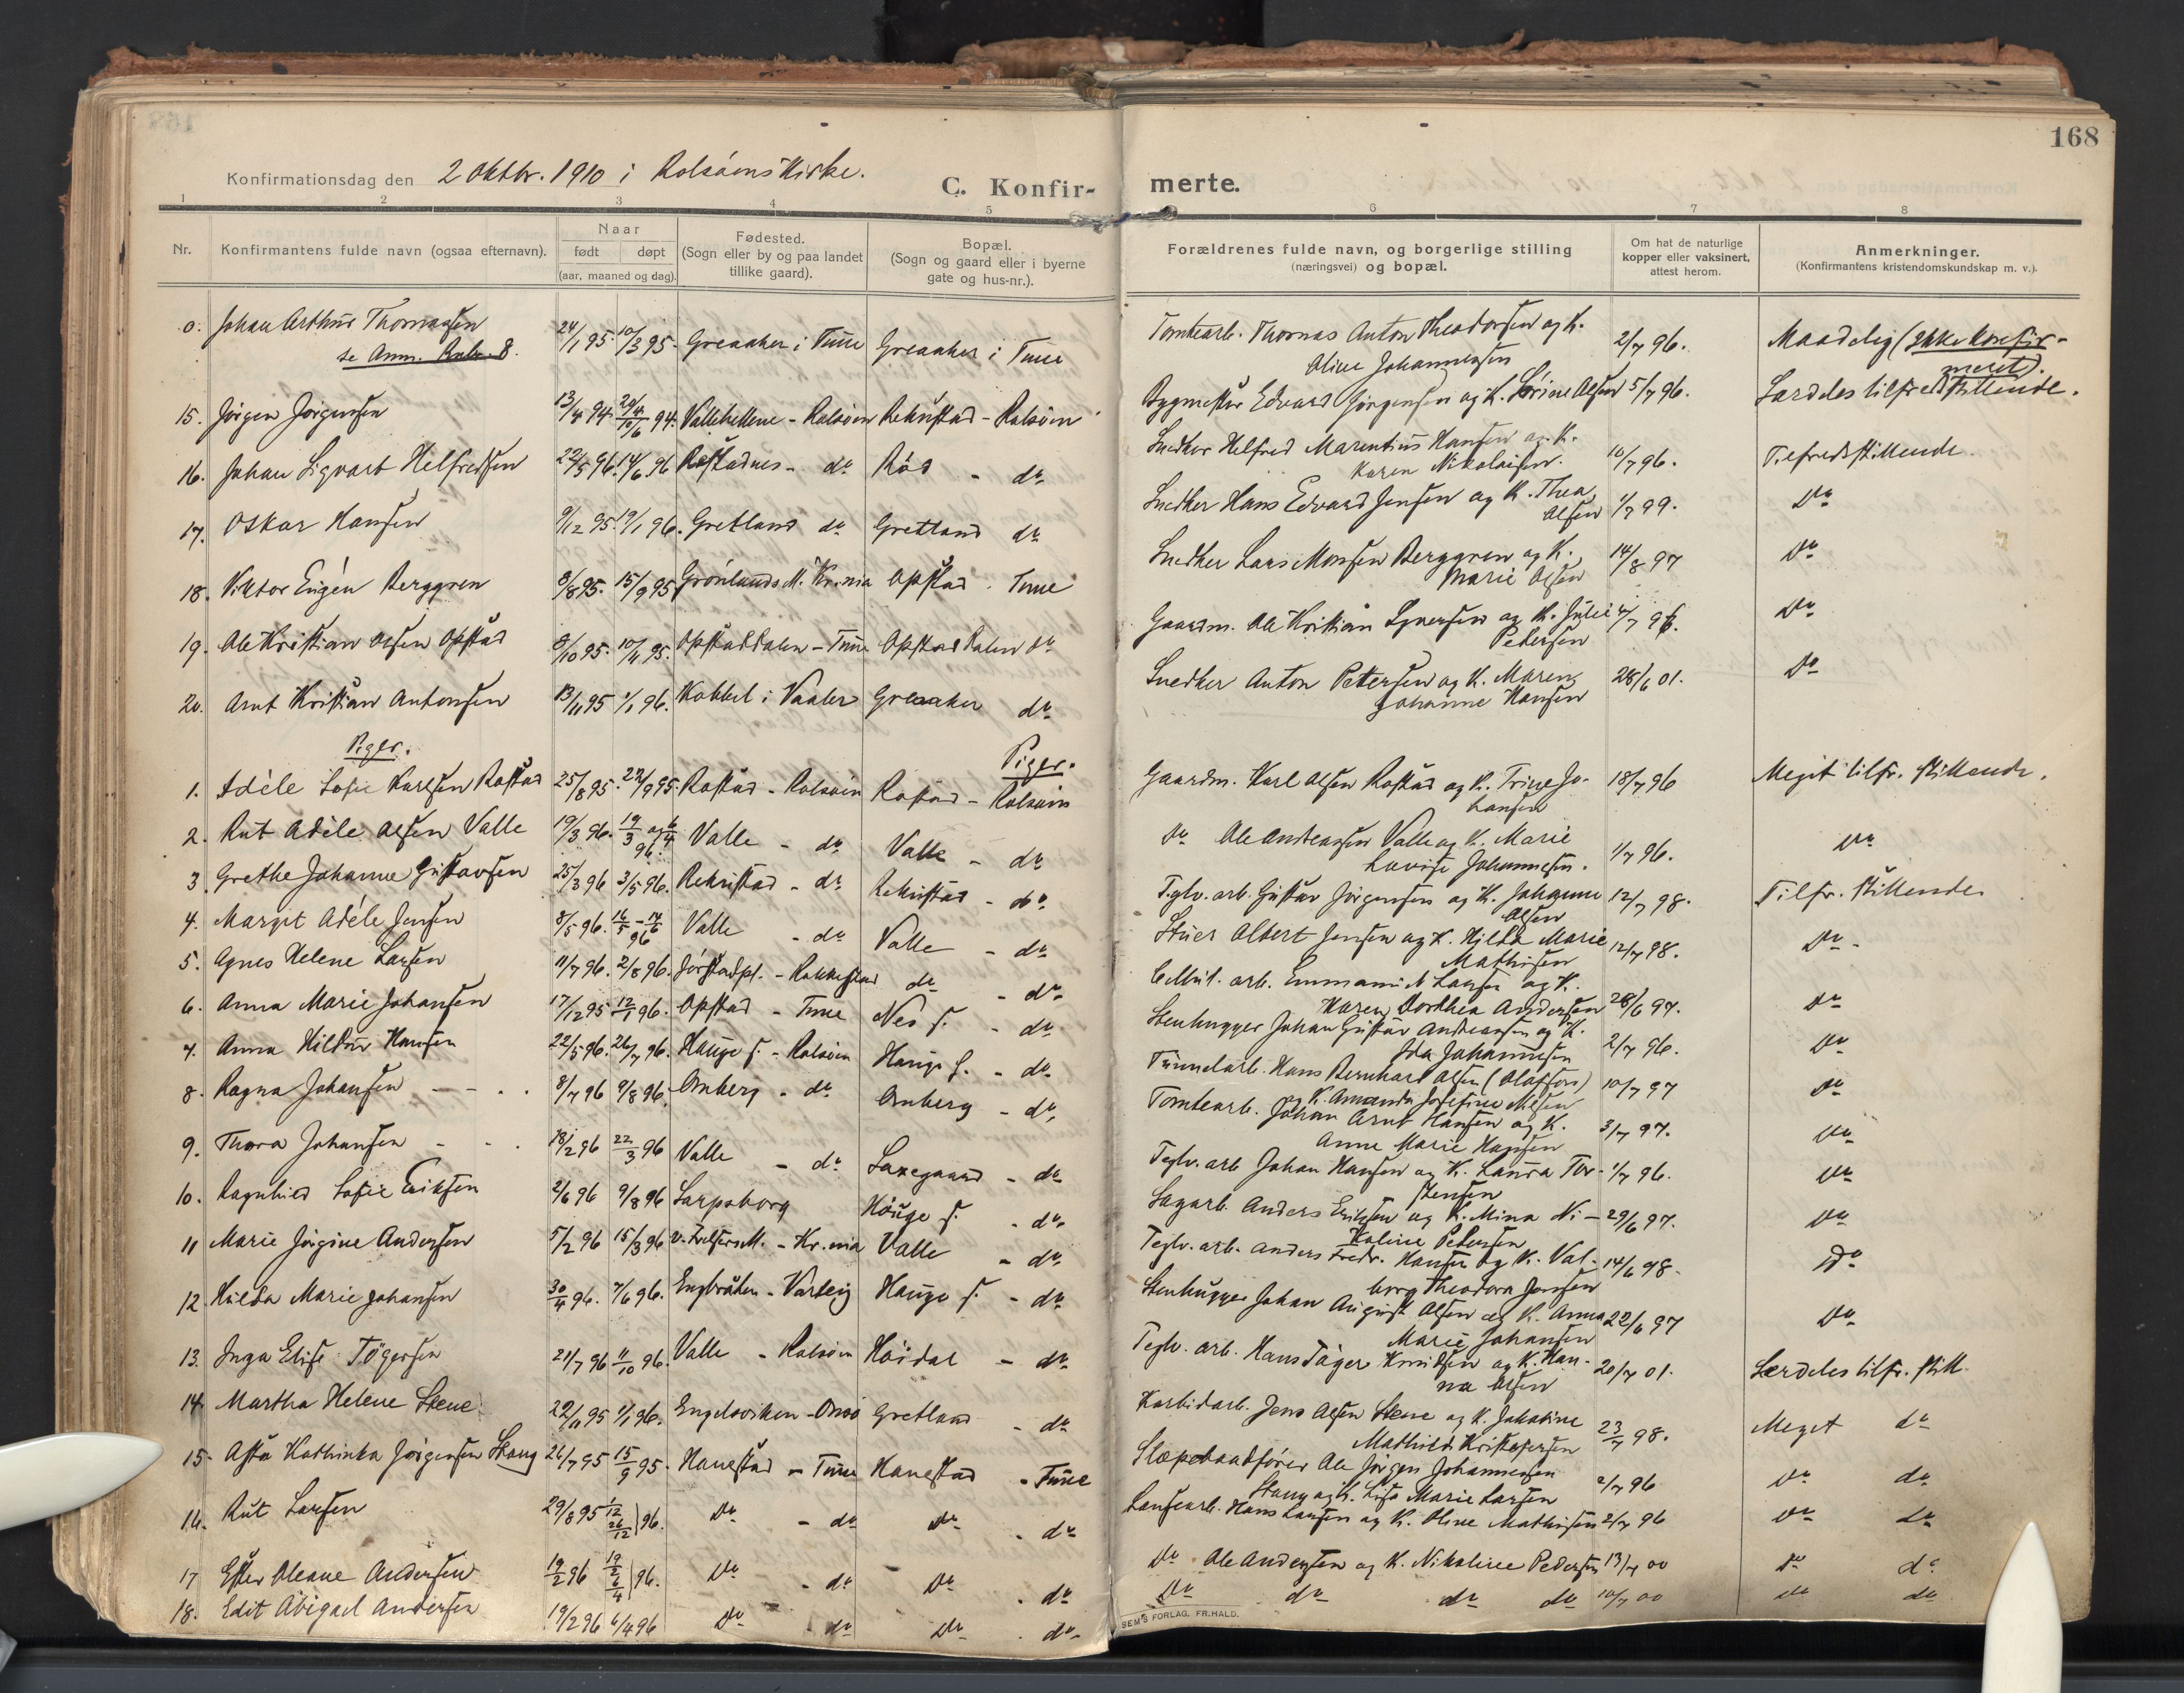 168
Konfirmationsdag den 2 Oktbr. 1910 i Rolsøens Kirke.
C. Konfir-
merte.
1 2 3 4 5 6 7 8
Nr.
Konfirmantens fulde navn (ogsaa efternavn).
Naar
født døpt
(aar, maaned og dag).
Fødested.
(Sogn eller by og paa landet
tillike gaard).
Bopæl.
(Sogn og gaard eller i byerne
gate og hus-nr.).
Forældrenes fulde navn, og borgerlige stilling
(næringsvei) og bopæl.
Om hat de naturlige
kopper eller vaksinert,
attest herom.
Anmerkninger.
(Konfirmantens kristendomskundskap m. v.).
0. Johan Arthur Thomassen 24/1 95. 10/3 95. Greaaker i Tune Greaaker i Tune Tomtearb. Thomas Anton Theodorsen og K. 2/7 96. Maadelig (ikke konfir-
se Anm. Rubr. 8. Oline Johannessen meret).
15. Jørgen Jørgensen 13/4 94. 29/4 10/6 94. Vallehellene - Rolsøen Rekustad - Rolsøen Bygmester Edvard Jørgensen og K. Sørine Olsen 5/7 96. Særdeles tilfredsstillende.
16. Johan Sigvart Helfredsen 22/5 96. 14/6 96 Rostadnes - do Rød - do Snedker Helfred Marentius Hansen og K. 10/7 96. Tilfredsstillende
Karen Nikolaisen.
17. Oskar Hansen 9/12 95. 19/1 96. Gretland do Gretland do Snedker Hans Edvard Jensen og K. Thea 1/7 99. Do
Olsen
18. Viktor Eugén Berggren 8/8 95. 15/9 95 Grønlands M. Kr.nia Opstad. Tune Snedker Lars Monsen Berggren og K. 14/8 97 Do
Marie Olsen
19. Ole Kristian Olsen Opstad 8/10 95. 10/11 95. Opstaddalen - Tune Opstaddalen do Gaardm. Ole Kristian Syversen og K. Julie 4/7 96. Do
Petersen
20. Arnt Kristian Antonsen 13/11 95 1/1 96. Kobbel i Vaaler Greaaker do Snedker Anton Petersen og K. Maren 28/6 01. Do
Johanne Hansen
Piger. Piger.
1. Adèle Sofie Karlsen Rostad 25/8 95. 22/9 95. Rostad - Rolsøen Rostad - Rolsøen Gaardm. Karl Olsen Rostad og K. Trine Jo- 18/7 96 Meget tilfr. stillende.
hansen
2. Rut Adèle Olsen Valle 19/3 96. 19/3 og 6/4 96. Valle - do Valle - do Do Ole Andreassen Valle og K. Marie 1/7 96. Do
Lovise Johannesen.
3. Grethe Johanne Gustavsen 25/3 96 3/5 96. Rekustad - do Rekustad - do Teglv. arb. Gustav Jørgensen og K. Johanne 12/7 98. Tilfr. stillende
Olsen
4. Margit Adéle Jensen 8/5 96. 16/5 - 14/6 96 Valle - do Valle - do Stuer Albert Jensen og K. Hilda Marie 12/7 98. Do
Mathisen
5. Agnes Helene Larsen 11/7 96. 2/8 96. Jørstadpl. - Rakkestad do - do Cellul. arb. Emmanuel Larsen og K.
Karen Dorthea Andersen 28/6 97. Do
6. Anna Marie Johansen 17/12 95 12/1 96. Opstad - Tune Nes s. - do Stenhugger Johan Gustav Andreassen og K. 2/7 96. Do
Ida Johannesen
7. Anna Hildur Hansen 22/5 96. 26/7 96. Hauge s. - Rolsøen Hauge s. - do Tunnelarb. Hans Bernhard Olsen (Olafson) 10/7 97 Do
og K. Amanda Josefine Nilsen
8. Ragna Johansen 8/7 96 9/8 96. Omberg - do Omberg - do Tomtearb. Johan Arnt Hansen og K. 3/7 97. Do
Anne Marie Hansen
9. Thora Johansen 18/2 96 22/3 96 Valle - do Laxegaard - do Teglv. arb Johan Hansen og K. Laura Tor- 1/7 96. Do
stensen
10. Ragnhild Sofie Eriksen 2/6 96 9/8 96 Sarpsborg Hauge s. - do Sagarb. Anders Eriksen og K. Mina Ni- 29/6 97. Do
koline Petersen
11 Marie Jørgine Andersen 5/2 96 15/3 96 V. Frelsers M. - Kr.nia Valle - do Teglv. arb. Anders Fredr. Hansen og K. Val- 14/6 98. Do
borg Theodora Jensen
12. Hilda Marie Johansen 30/4 96. 7/6 96. Engbråten - Varteig Hauge s. - do Stenhugger Johan August Olsen og K. Anna 22/6 97 Do
Marie Johansen
13. Inga Elise Tøgersen 21/7 96 11/10 96. Valle - Rolsøen Høidal - do Teglv. arb. Hans Tøger Knudsen og K. Han- 20/7 01. Særdeles tilfr. still.
na Olsen
14. Martha Helene Stene 22/11 95 1/1 96. Engelsviken - Onsø Gretland - do Karbidarb. Jens Olsen Stene og K. Jakobine 23/7 98. Meget do
Mathilde Kristofersen
15. Asta Kathinka Jørgensen Stang 26/7 95 15/9 95. Hanestad - Tune Hanestad - Tune Slæpebaadfører Ole Jørgen Johannessen 2/7 96 Do do
Stang og K. Lisa Marie Larsen
16. Rut Larsen 29/8 95 1/12 26/12 96. Do - do Do - do Lensearb. Hans Larsen og K. Oline Mathisen 2/7 96 Do do
17 Ester Oleane Andersen 19/2 96 19/2 6/4 96. Do - do Do - do Do Ole Andersen og K. Nikoline Pedersen 13/7 00 Do do
18. Edit Abigael Andersen 19/2 96 6/4 96 Do - do Do - do Do do do do 10/7 00 Do do
SEM'S FORLAG, FR.HALD.